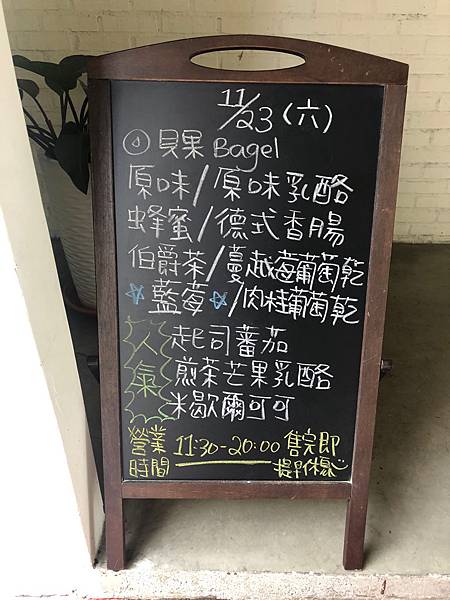 11/23(六)
貝果 Bagel
原味/原味乳酪
蜂蜜/德式香腸
伯爵茶/蔓越莓葡萄乾
☆藍莓☆/肉桂葡萄乾
人氣
起司蕃茄
煎茶芒果乳酪
米歇爾可可
營業時間 11:30-20:00 售完即提早休息